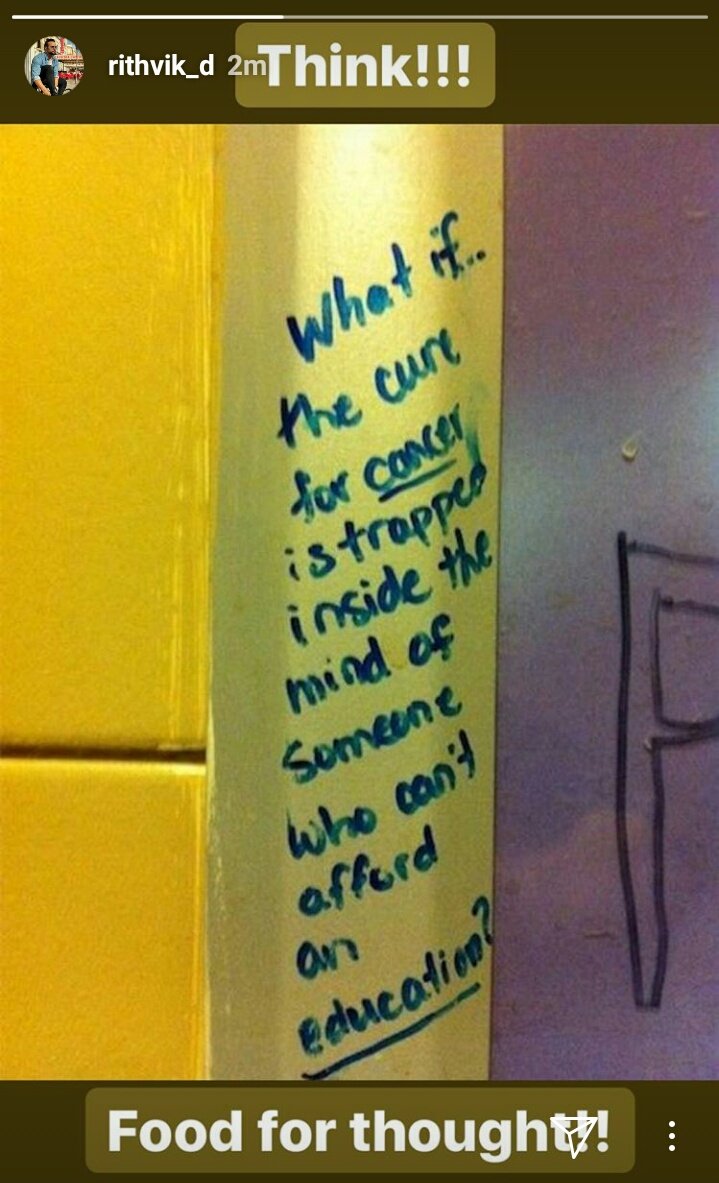 rithvik_d 2m
Think!!!
What if..
the cure
for cancer
is trapped
inside the
mind of
someone
who can't
afford
an
education?
P
Food for thought!!